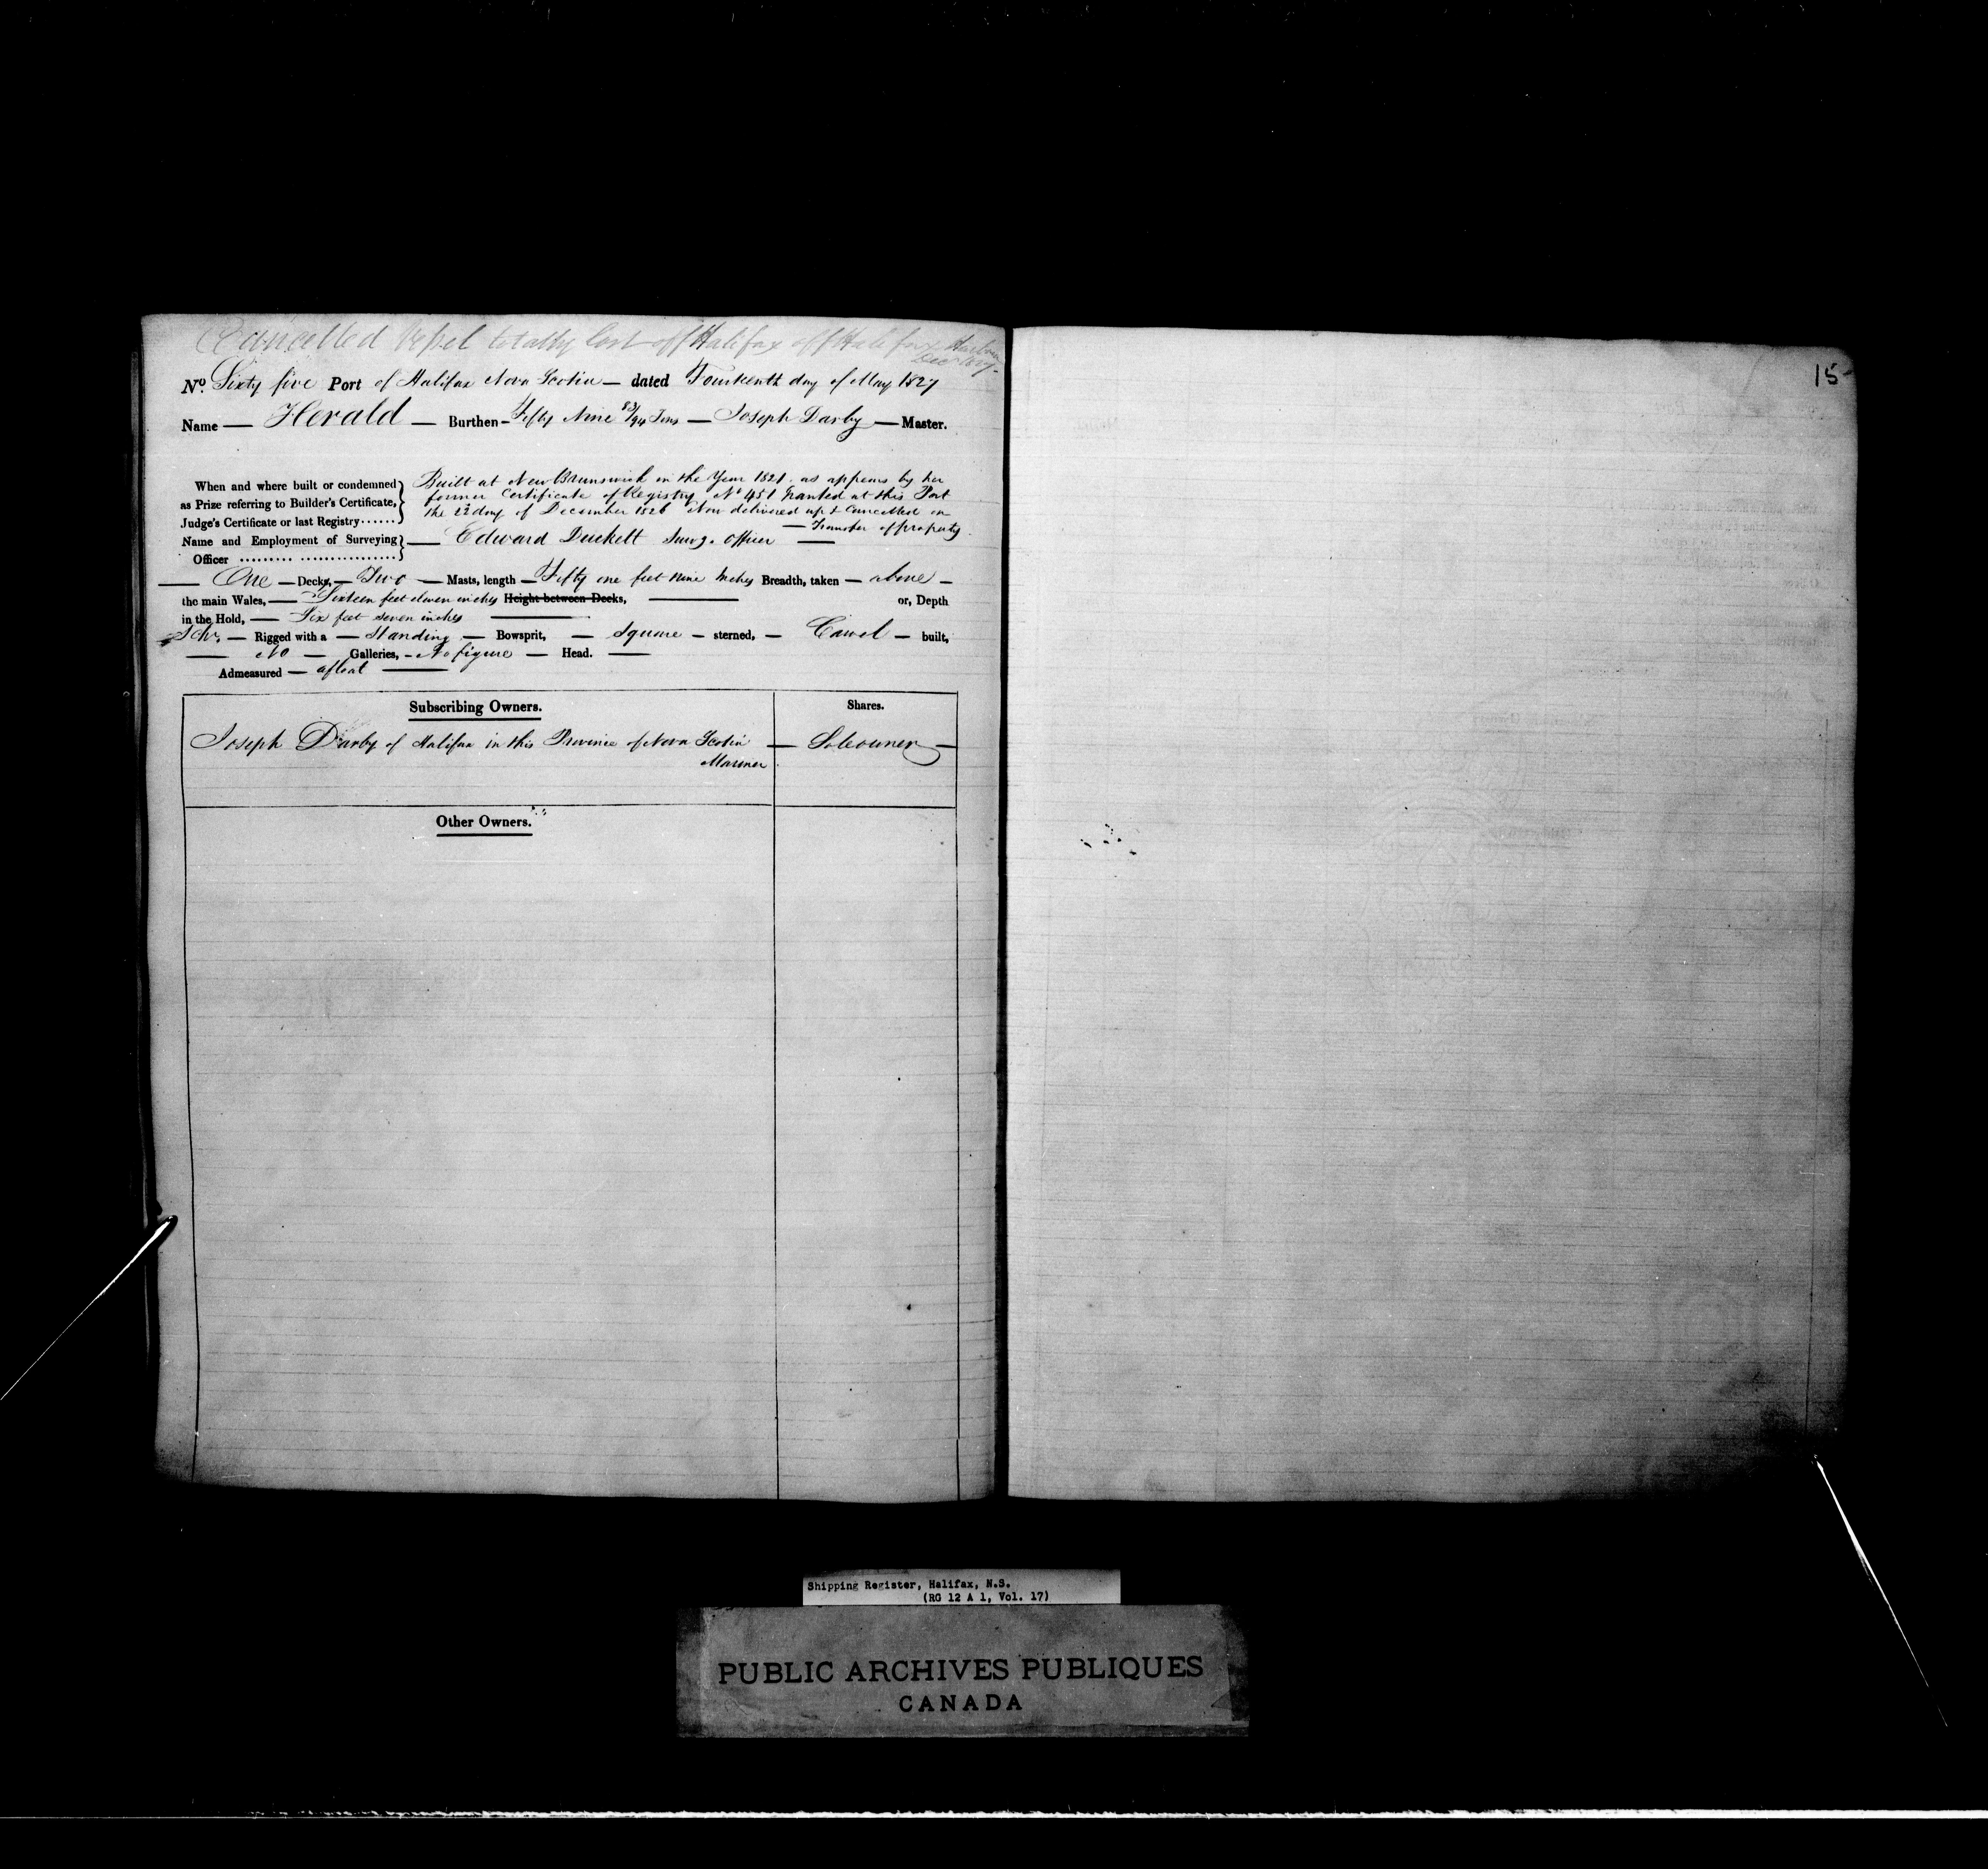 Cancelled Vessel totally lost off Halifax off Halifax Harbour
Decr 1827.
No. Sixty five Port of Halifax Nova Scotia — dated Fourteenth day of May 1827
Name — Herald — Burthen — Fifty Nine 83/94 Tons — Joseph Darby — Master.
When and where built or condemned as Prize referring to Builder's Certificate, Judge's Certificate or last Registry......
Built at New Brunswick in the Year 1821. as appears by her
former Certificate of Registry No 451 Granted at this Port
the 22 day of December 1826 Now delivered up & Cancelled on
— Transfer of property
Name and Employment of Surveying Officer — Edward Duckett Survg. Officer —
— One — Decks, — Two — Masts, length — Fifty one feet nine Inches Breadth, taken — above —
the main Wales, — Sixteen feet eleven inches Height between Decks, — or, Depth
in the Hold, — Six feet seven inches —
Schr. — Rigged with a — Standing — Bowsprit, — Square — sterned, — Carvel — built,
— No — Galleries, — No figure — Head. —
Admeasured — afloat —
Subscribing Owners. Shares.
Joseph Darby of Halifax in this Province of Nova Scotia — Sole owner —
Mariner
Other Owners.
15
Shipping Register, Halifax, N.S.
(RG 12 A 1, Vol. 17)
PUBLIC ARCHIVES PUBLIQUES
CANADA